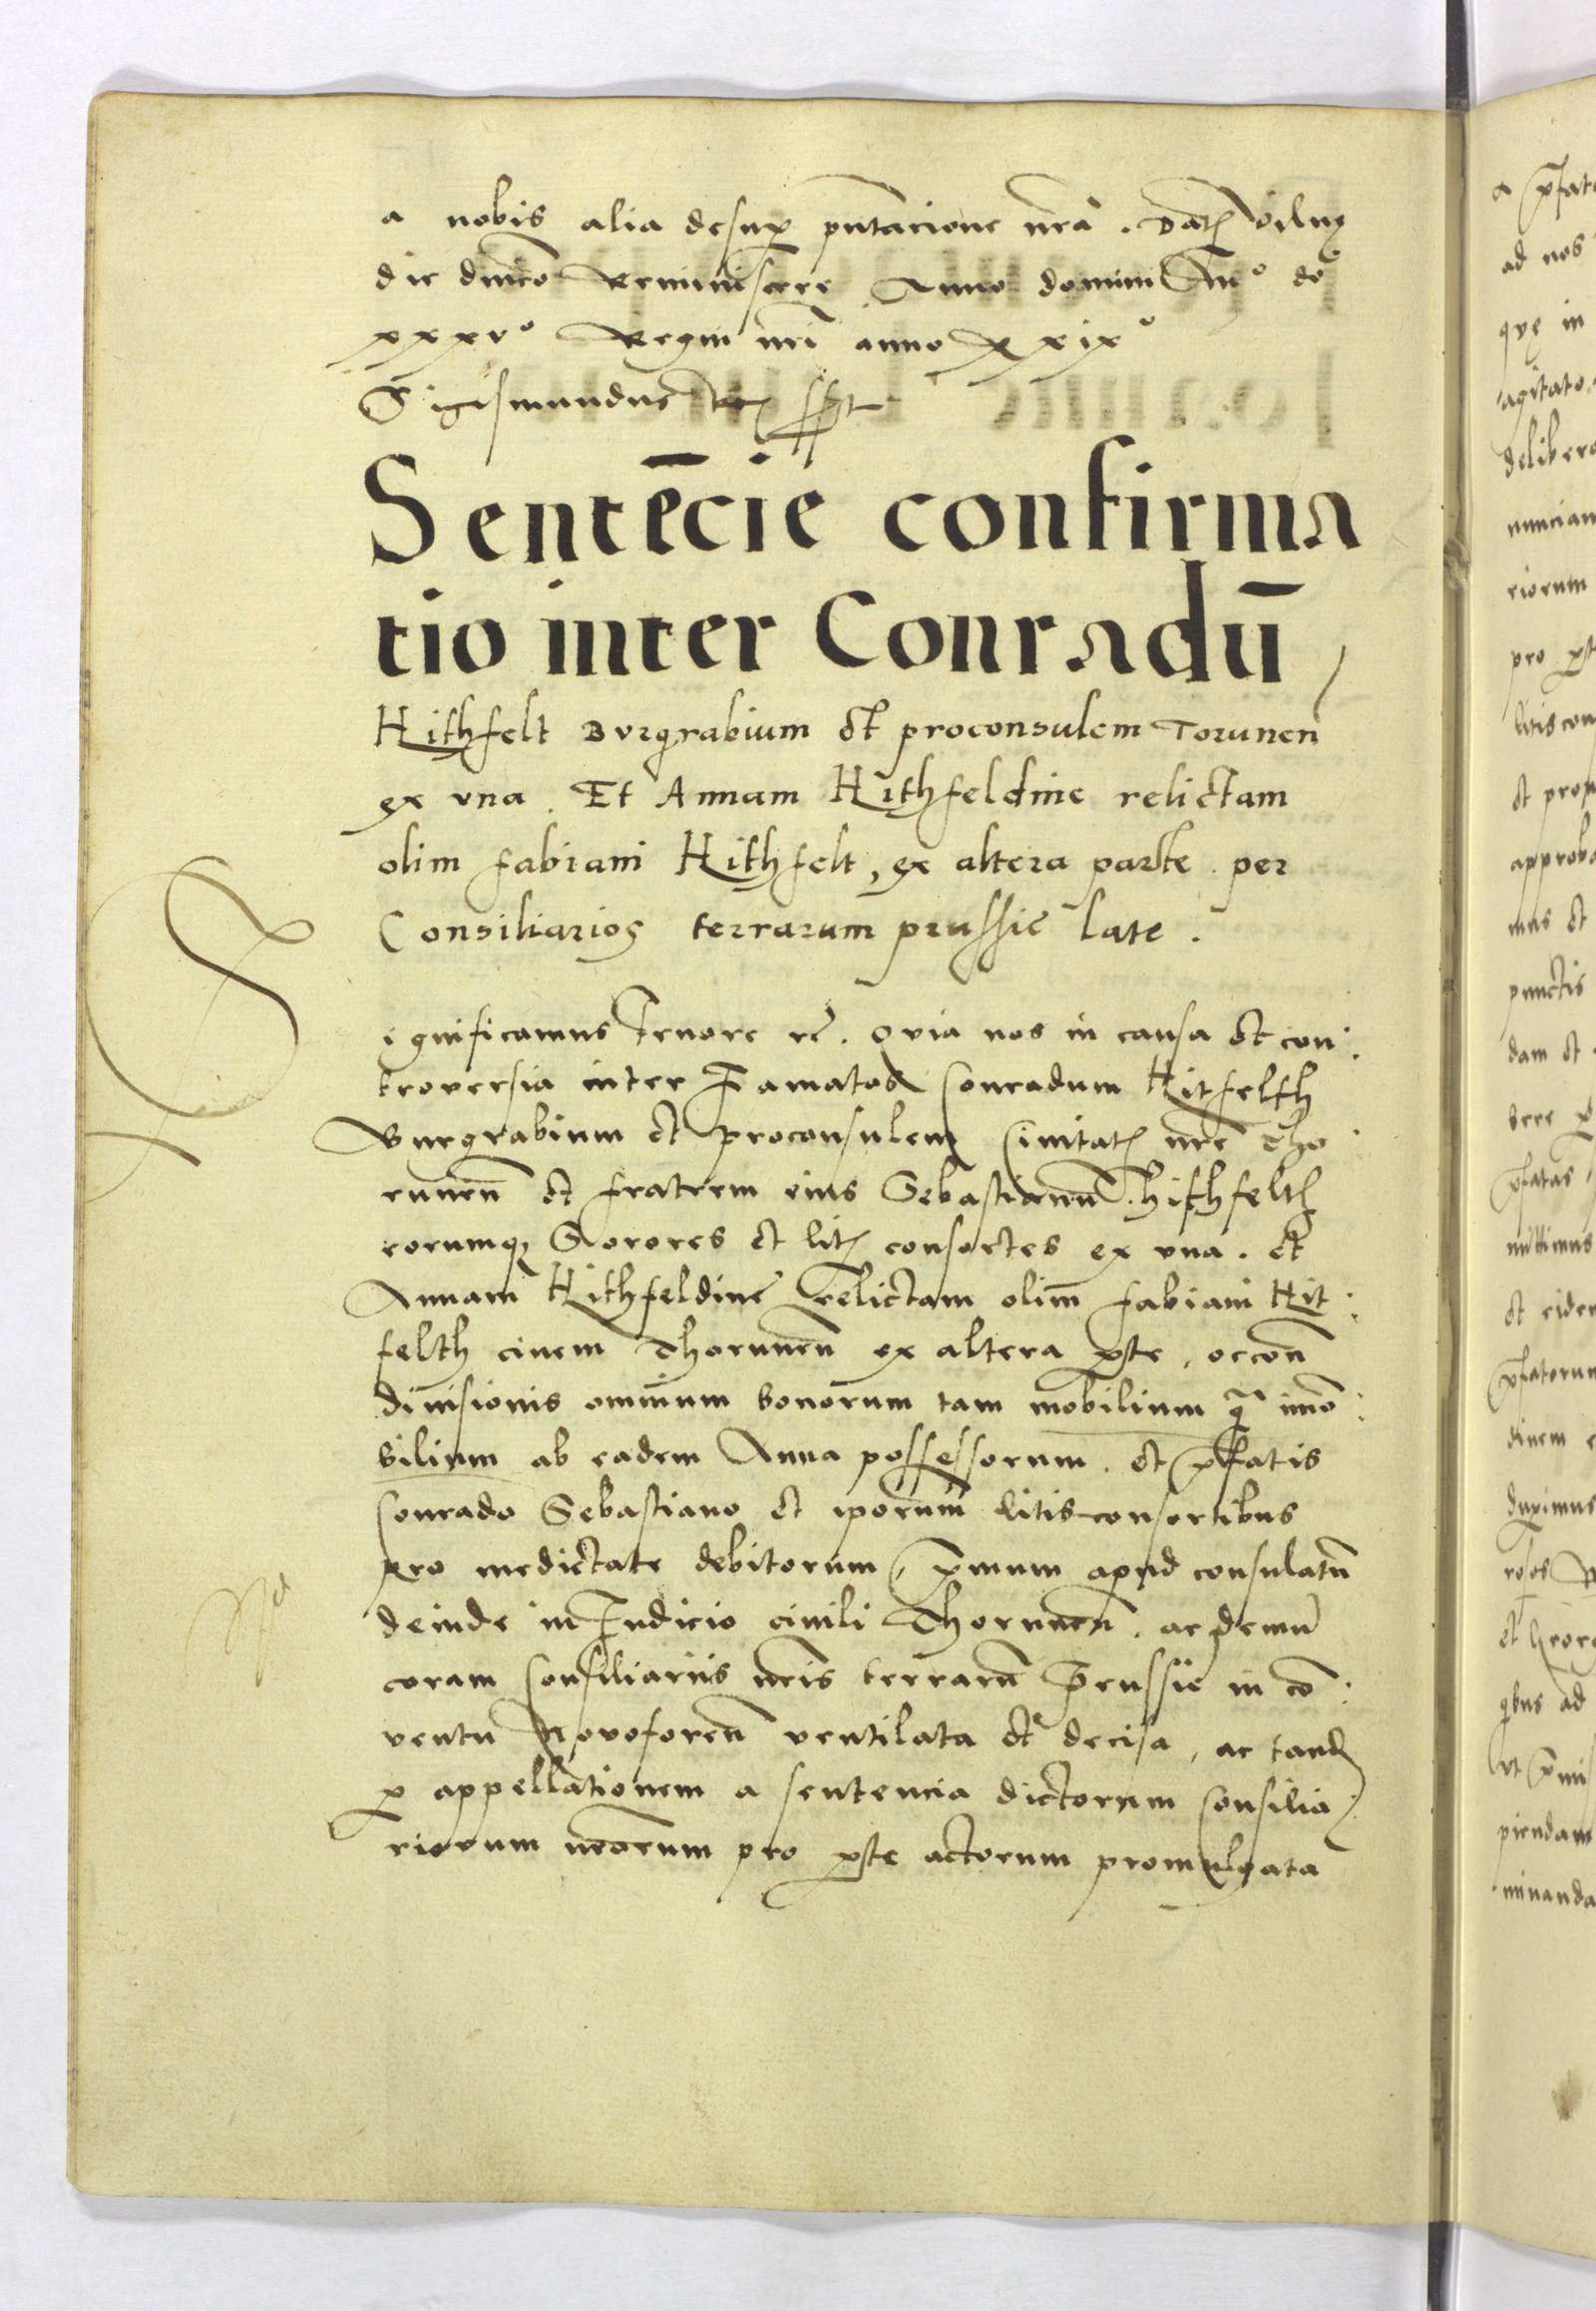 a nobis alia desup pntacione nrã. Datꝭ Vilnę
die dnico Reminiscere Anno domini Mº dº
xxxvº Regni nri anno xxixº
Sigismundus Rex sst
Sentēcie confirma
tio inter Conradū
Hithfelt Burgrabium et proconsulem Torunen
ex vna. Et Annam Hithfeldine relictam
olim fabiani Hithfelt, ex altera parte. per
Consiliarios terrarum prussie late.
Significamus tenore rē. Quia nos in causa et con:
troversia inter Famatos Conradum Hitfelth
Burgrabium et proconsulem Civitatꝭ nrē Tho
runen̄ et fratrem eius Sebastianū. hithfeltꝭ
eorumqꝫ Sorores et litꝭ consortes ex vna. Et
Annam Hithfeldinē relictam olim fabiani Hit:
felth civem Thorunen̄ ex altera ꝑte, occon̄
divisionis omnium bonorum tam mobilium q̄ imō:
bilium ab eadem Anna possessorum. et p̄fatis
Conrado Sebastiano et ip̄orum litisconsortibus
pro medietate debitorum, p̄mum apud consulatū
deinde in Iudicio civili Thorunen̄. ac demū
coram Consiliariis nr̄is terrarū Prussie in cō:
ventu Novoforen̄ ventilata et decisa, ac tandꝭ
ꝑ appellationem a sentencia dictorum Consilia:
riorum nr̄orum pro ꝑte actorum promulgata
a p̄fat
ad nos
qvę in
agitato
delibera
nuncian
riorum
pro
litiscon
et prop
approba
mus et
punctis
dam et
bere p
p̄fatas
mittimus
et eiden
p̄fatorum
dinem
duximus
et Georg
qbus ad
piendam
minanda